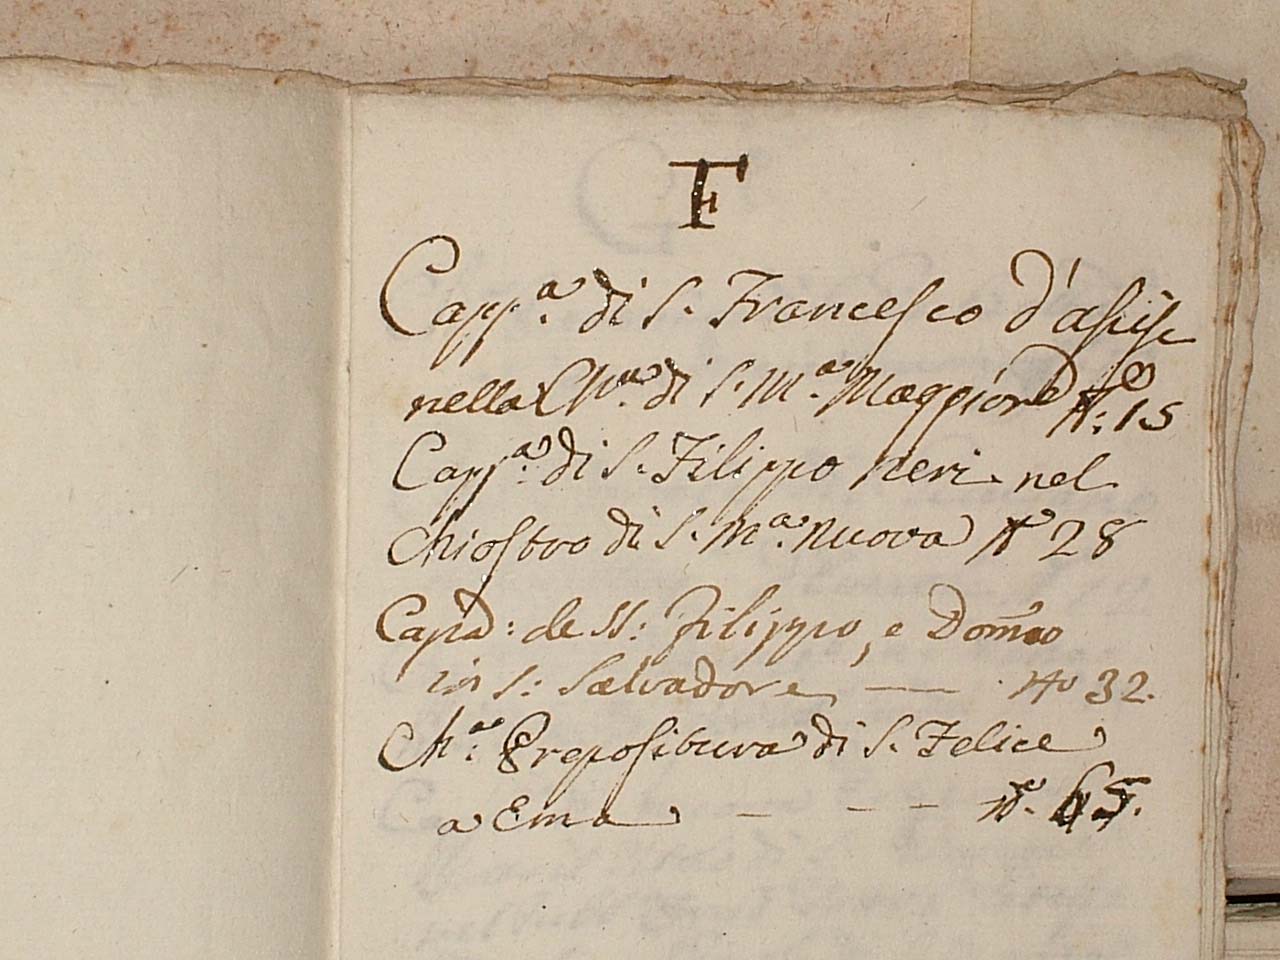 F
Capp.a di S. Francesco d'Asisi
nella Ch.a di S. M.a Maggiore N.o 15
Capp.a di S. Filippo Neri nel
Chiostro di S. M.a Nuova N.o 28
de SS: Filippo, e Dom.co
in S: Salvadore — No 32.
Ch.a Prepositura di S. Felice
a Ema - - - N.o